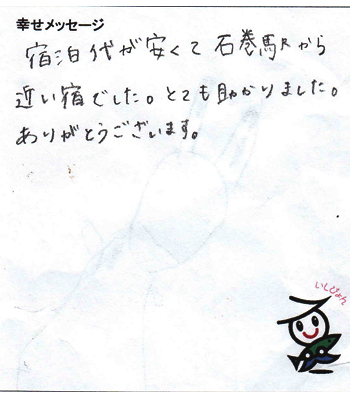 幸せメッセージ
宿泊代が安くて 石巻駅から
近い宿でした。とても助かりました。
ありがとうございます。
いしぴょん